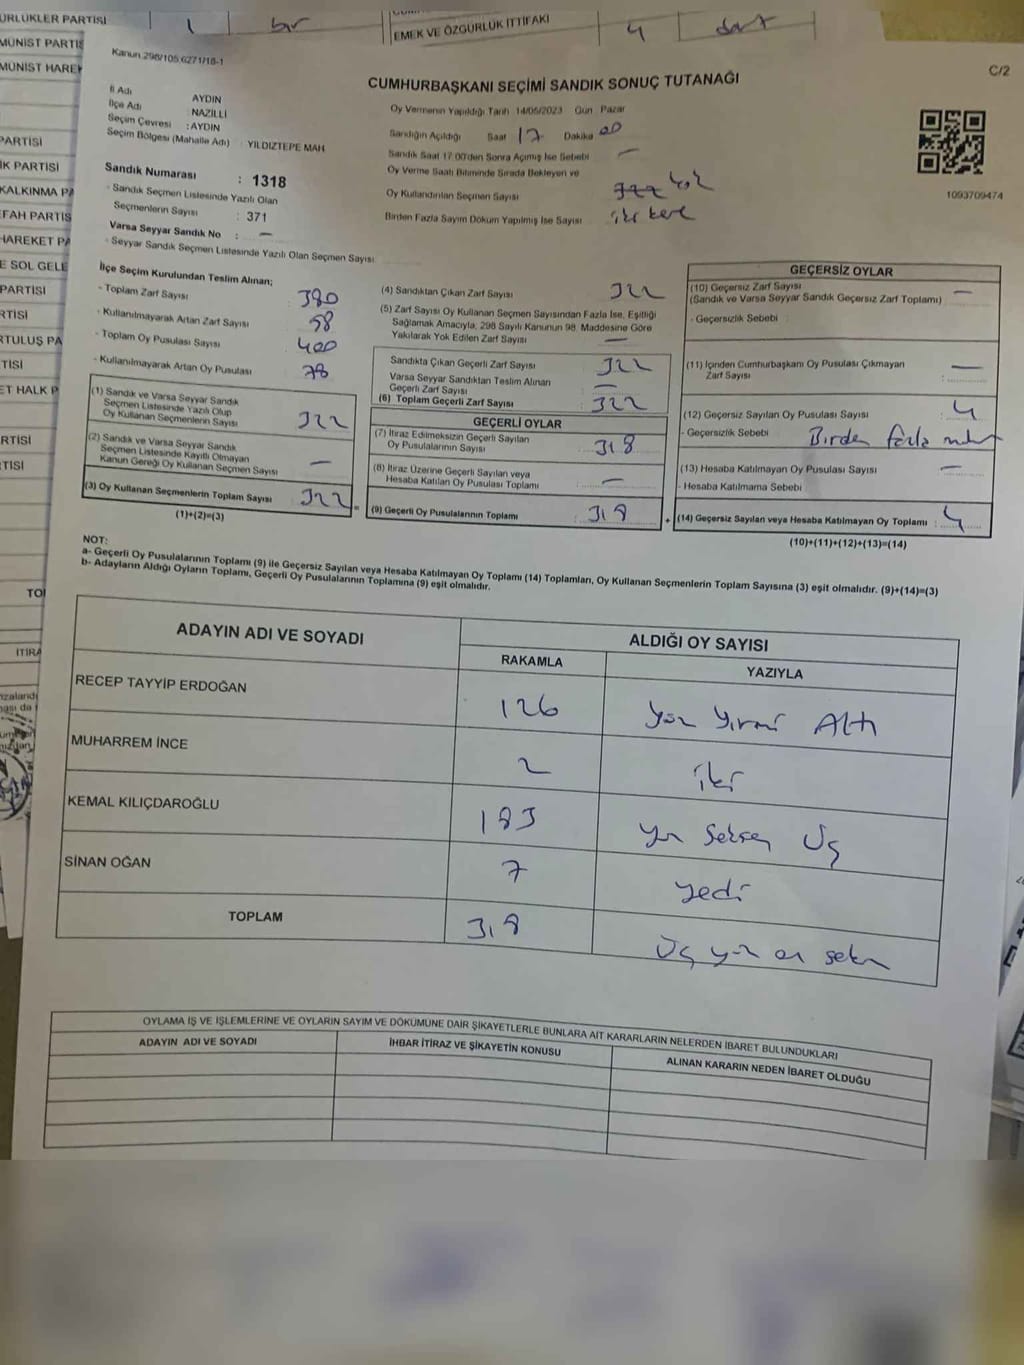 ÜRLÜKLER PARTİSİ
1
bir
EMEK VE ÖZGÜRLÜK İTTİFAKI
4
dört
MÜNİST PARTİS
MÜNİST HAREK
PARTİSİ
İK PARTİSİ
KALKINMA PA
EFAH PARTİS
HAREKET PA
E SOL GELE
PARTİSİ
RTİSİ
RTULUŞ PA
TİSİ
ET HALK P
RTİSİ
TİSİ
TO
İTİRA
Kanun 298/105 6271/18-1
C/2
CUMHURBAŞKANI SEÇİMİ SANDIK SONUÇ TUTANAĞI
İl Adı AYDIN
İlçe Adı NAZİLLİ
Seçim Çevresi : AYDIN
Seçim Bölgesi (Mahalle Adı) : YILDIZTEPE MAH
Sandık Numarası : 1318
- Sandık Seçmen Listesinde Yazılı Olan
Seçmenlerin Sayısı : 371
Varsa Seyyar Sandık No : —
- Seyyar Sandık Seçmen Listesinde Yazılı Olan Seçmen Sayısı
Oy Vermenin Yapıldığı Tarih 14/05/2023 Gün Pazar
Sandığın Açıldığı Saat 17 Dakika 00
Sandık Saat 17:00'den Sonra Açılmış İse Sebebi —
Oy Verme Saati Bitiminde Sırada Bekleyen ve
Oy Kullandırılan Seçmen Sayısı 322 yok
Birden Fazla Sayım Döküm Yapılmış İse Sayısı iki kere
1093709474
İlçe Seçim Kurulundan Teslim Alınan;
- Toplam Zarf Sayısı 380
- Kullanılmayarak Artan Zarf Sayısı 58
- Toplam Oy Pusulası Sayısı 400
- Kullanılmayarak Artan Oy Pusulası 78
(1) Sandık ve Varsa Seyyar Sandık
Seçmen Listesinde Yazılı Olup
Oy Kullanan Seçmenlerin Sayısı 322
(2) Sandık ve Varsa Seyyar Sandık
Seçmen Listesinde Kayıtlı Olmayan
Kanun Gereği Oy Kullanan Seçmen Sayısı —
(3) Oy Kullanan Seçmenlerin Toplam Sayısı 322
(1)+(2)=(3)
=
(4) Sandıktan Çıkan Zarf Sayısı 322
(5) Zarf Sayısı Oy Kullanan Seçmen Sayısından Fazla İse, Eşitliği
Sağlamak Amacıyla, 298 Sayılı Kanunun 98. Maddesine Göre
Yakılarak Yok Edilen Zarf Sayısı —
Sandıkta Çıkan Geçerli Zarf Sayısı 322
Varsa Seyyar Sandıktan Teslim Alınan
Geçerli Zarf Sayısı —
(6) Toplam Geçerli Zarf Sayısı 322
GEÇERLİ OYLAR
(7) İtiraz Edilmeksizin Geçerli Sayılan
Oy Pusulalarının Sayısı 318
(8) İtiraz Üzerine Geçerli Sayılan veya
Hesaba Katılan Oy Pusulası Toplamı —
(9) Geçerli Oy Pusulalarının Toplamı 318
+
GEÇERSİZ OYLAR
(10) Geçersiz Zarf Sayısı —
(Sandık ve Varsa Seyyar Sandık Geçersiz Zarf Toplamı)
- Geçersizlik Sebebi :
(11) İçinden Cumhurbaşkanı Oy Pusulası Çıkmayan
Zarf Sayısı : —
(12) Geçersiz Sayılan Oy Pusulası Sayısı 4
- Geçersizlik Sebebi : Birden fazla
(13) Hesaba Katılmayan Oy Pusulası Sayısı —
- Hesaba Katılmama Sebebi :
(14) Geçersiz Sayılan veya Hesaba Katılmayan Oy Toplamı : 4
(10)+(11)+(12)+(13)=(14)
NOT:
a- Geçerli Oy Pusulalarının Toplamı (9) ile Geçersiz Sayılan veya Hesaba Katılmayan Oy Toplamı (14) Toplamları, Oy Kullanan Seçmenlerin Toplam Sayısına (3) eşit olmalıdır. (9)+(14)=(3)
b- Adayların Aldığı Oyların Toplamı, Geçerli Oy Pusulalarının Toplamına (9) eşit olmalıdır.
ADAYIN ADI VE SOYADI
ALDIĞI OY SAYISI
RAKAMLA
YAZIYLA
RECEP TAYYİP ERDOĞAN 126 yüz yirmi Altı
MUHARREM İNCE 2 iki
KEMAL KILIÇDAROĞLU 183 yüz seksen Üç
SİNAN OĞAN 7 yedi
TOPLAM 318 Üç yüz on sekiz
OYLAMA İŞ VE İŞLEMLERİNE VE OYLARIN SAYIM VE DÖKÜMÜNE DAİR ŞİKAYETLERLE BUNLARA AİT KARARLARIN NELERDEN İBARET BULUNDUKLARI
ADAYIN ADI VE SOYADI
İHBAR İTİRAZ VE ŞİKAYETİN KONUSU
ALINAN KARARIN NEDEN İBARET OLDUĞU